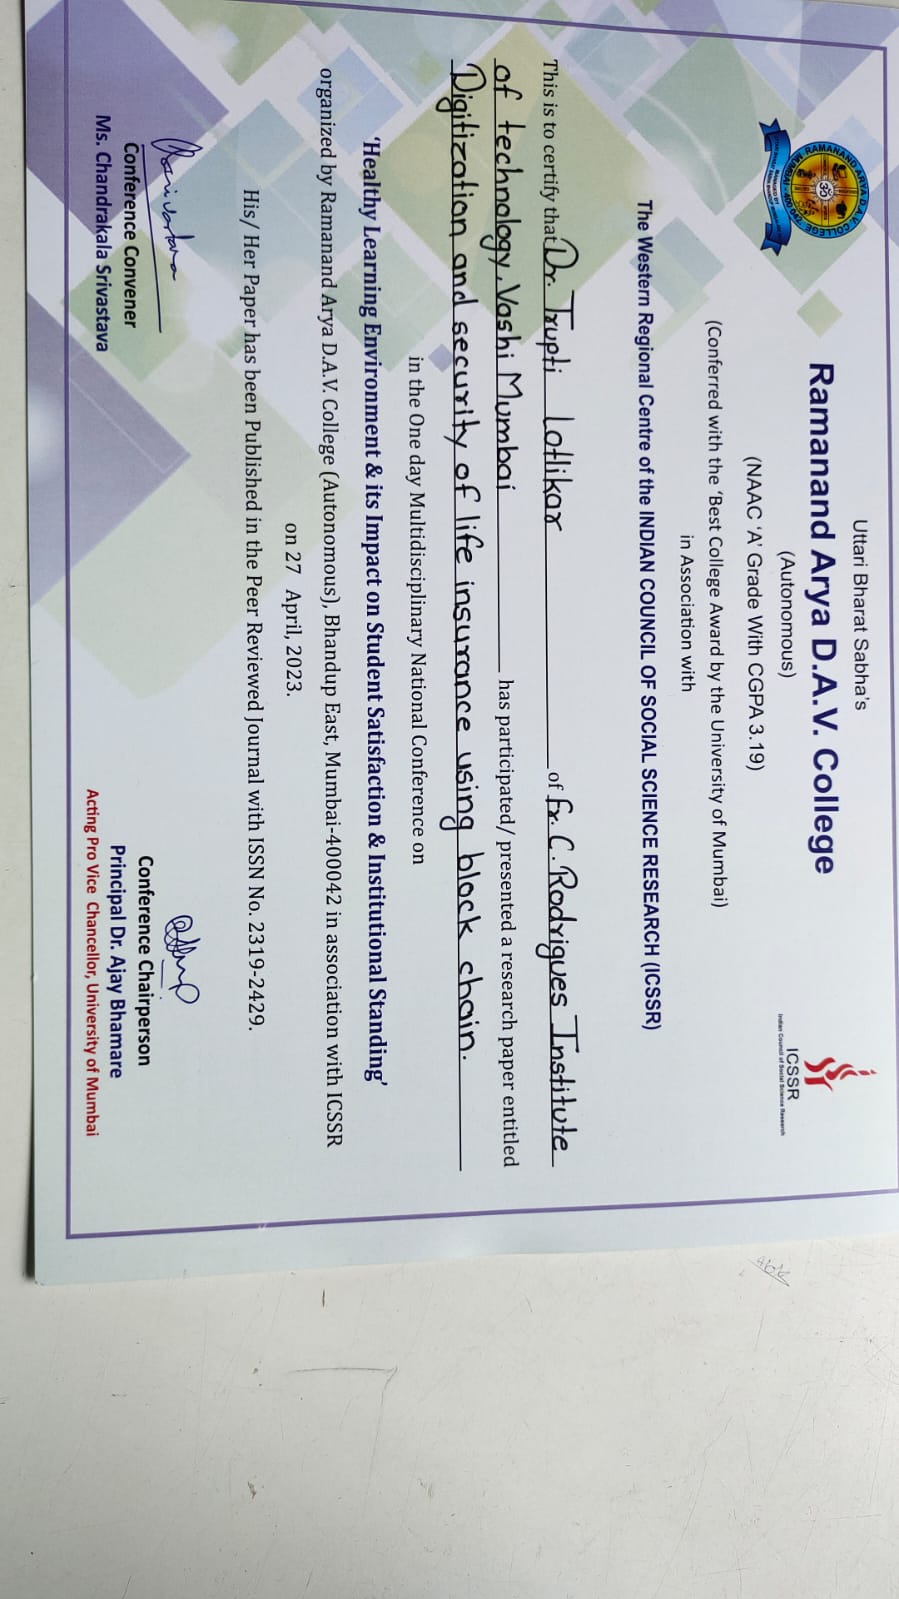 Uttari Bharat Sabha's
Ramanand Arya D.A.V. College
(Autonomous)
(NAAC 'A' Grade With CGPA 3.19)
(Conferred with the 'Best College Award by the University of Mumbai)
in Association with
The Western Regional Centre of the INDIAN COUNCIL OF SOCIAL SCIENCE RESEARCH (ICSSR)
ICSSR
Indian Council of Social Science Research
This is to certify that Dr. Trupti Lotlikar of Fr. C. Rodrigues Institute
of technology, Vashi Mumbai has participated/ presented a research paper entitled
Digitization and security of life insurance using block chain.
in the One day Multidisciplinary National Conference on
'Healthy Learning Environment & its Impact on Student Satisfaction & Institutional Standing'
organized by Ramanand Arya D.A.V. College (Autonomous), Bhandup East, Mumbai-400042 in association with ICSSR
on 27 April, 2023.
His/ Her Paper has been Published in the Peer Reviewed Journal with ISSN No. 2319-2429.
Conference Convener
Ms. Chandrakala Srivastava
Conference Chairperson
Principal Dr. Ajay Bhamare
Acting Pro Vice Chancellor, University of Mumbai